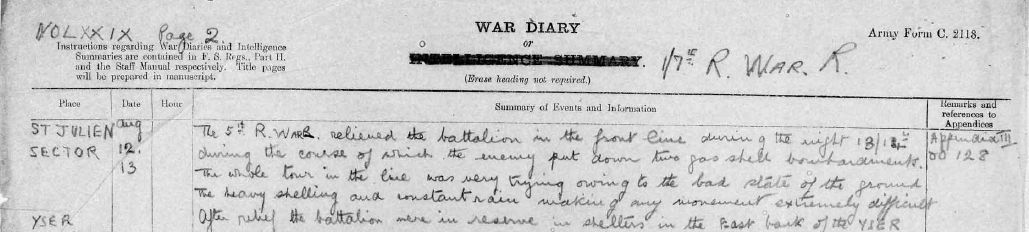 NO LXXIX Page 2
WAR DIARY
or
INTELLIGENCE SUMMARY.
(Erase heading not required.)
Army Form C. 2118.
Instructions regarding War Diaries and Intelligence
Summaries are contained in F. S. Regs., Part II.
and the Staff Manual respectively. Title pages
will be prepared in manuscript.
1/7th R. WAR. R.
Place Date Hour Summary of Events and Information Remarks and
references to
Appendices
ST JULIEN Aug The 5th R. WAR R. relieved the battalion in the front line during the night 13/14th Appendix III
SECTOR 12. during the course of which the enemy put down two gas shell bombardments. OO 128
13 The whole tour in the line was very trying owing to the bad state of the ground
the heavy shelling and constant rain making any movement extremely difficult
YSER After relief the battalion were in reserve in shelters in the East bank of the YSER